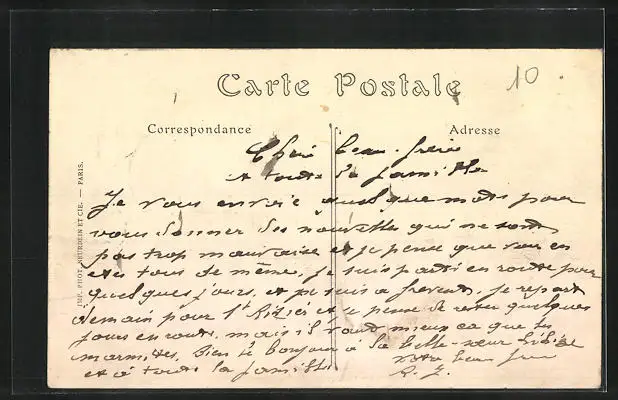 10
Carte Postale
Correspondance
Adresse
IMP. PHOT. NEURDEIN ET CIE. — PARIS.
Cher beau-frère
et toute la famille
Je vous envoie quelque mots pour
vous donner des nouvelles qui ne sont
pas trop mauvaise et je pense que vous en
etes tous de même, je suis parti en route pour
quelques jours, et je suis a je repart
demain pour St et je pense de rester quelques
jours en route, mais il vaut mieux ca que les
marmites, bien le bonjour à la belle-sœur
et à toute la famille
Votre beau frère